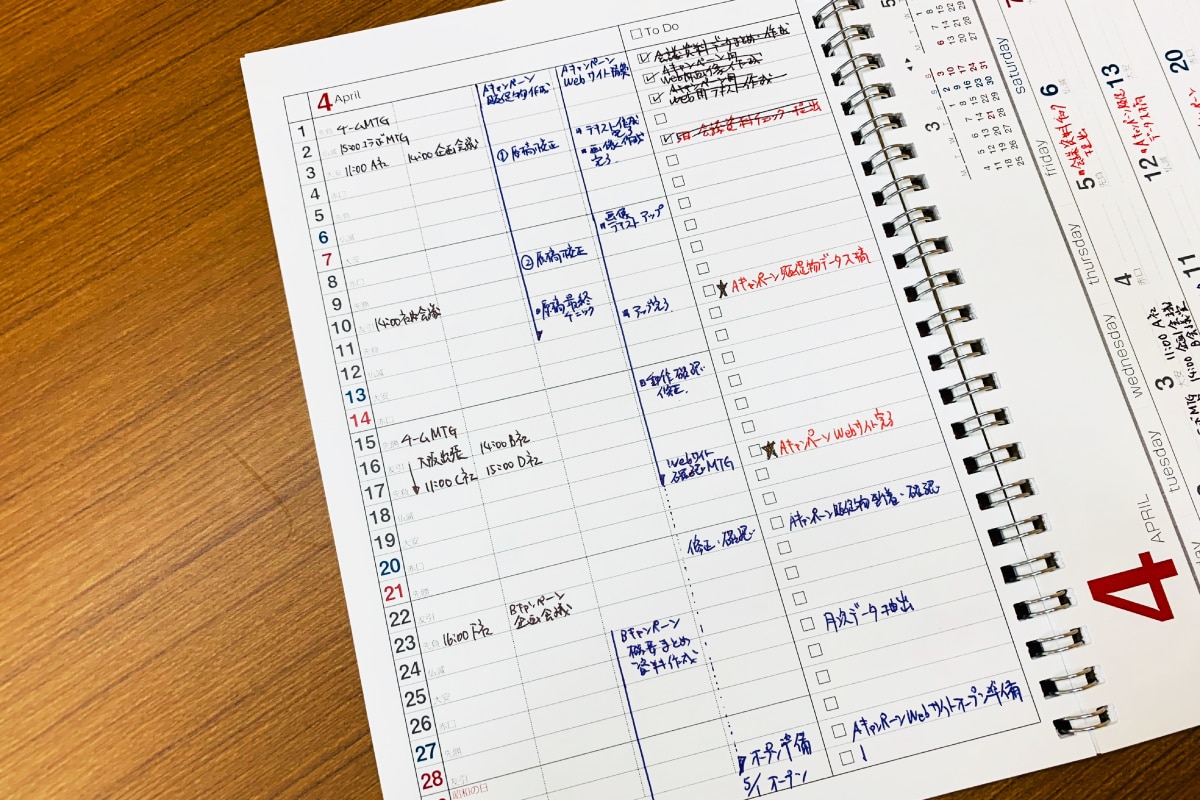 4 April
□To Do
Aキャンペーン
販促物作成
Aキャンペーン
Webサイト構築
会議資料データまとめ・作成
Aキャンペーン用
Web用画像作成
Aキャンペーン用
Web用テキスト作成
5日 会議資料チェック・提出
1 チームMTG
2 15:00 MTG
3 11:00 A社 14:00 企画会議
①原稿校正
■テキスト作成
完了
■画像作成
完了
4
5
6
■画像
テキストアップ
7
8
②原稿校正
9
10 14:00 会議
■原稿最終
チェック
■アップ完了
★Aキャンペーン販促物データ入稿
11
12
13
■動作確認
修正
14
15 チームMTG
16 大阪出張 14:00 B社
17 11:00 C社 15:00 D社
Webサイト
確認MTG
★AキャンペーンWebサイト完了
18
19
修正・確認
Aキャンペーン販促物到着・確認
20
21
22
Bキャンペーン
企画会議
23 16:00 F社
Bキャンペーン
概要まとめ
資料作成
月次データ抽出
24
25
26
27
28
昭和の日
オープン準備
5/1 オープン
AキャンペーンWebサイトオープン準備
4
APRIL
tuesday
wednesday
thursday
friday
saturday
3
11:00 A社
14:00 企画会議
B会議室
4
5
■会議資料チェック
提出
6
11
12
■Aキャンペーン販促
データ入稿
13
20
3